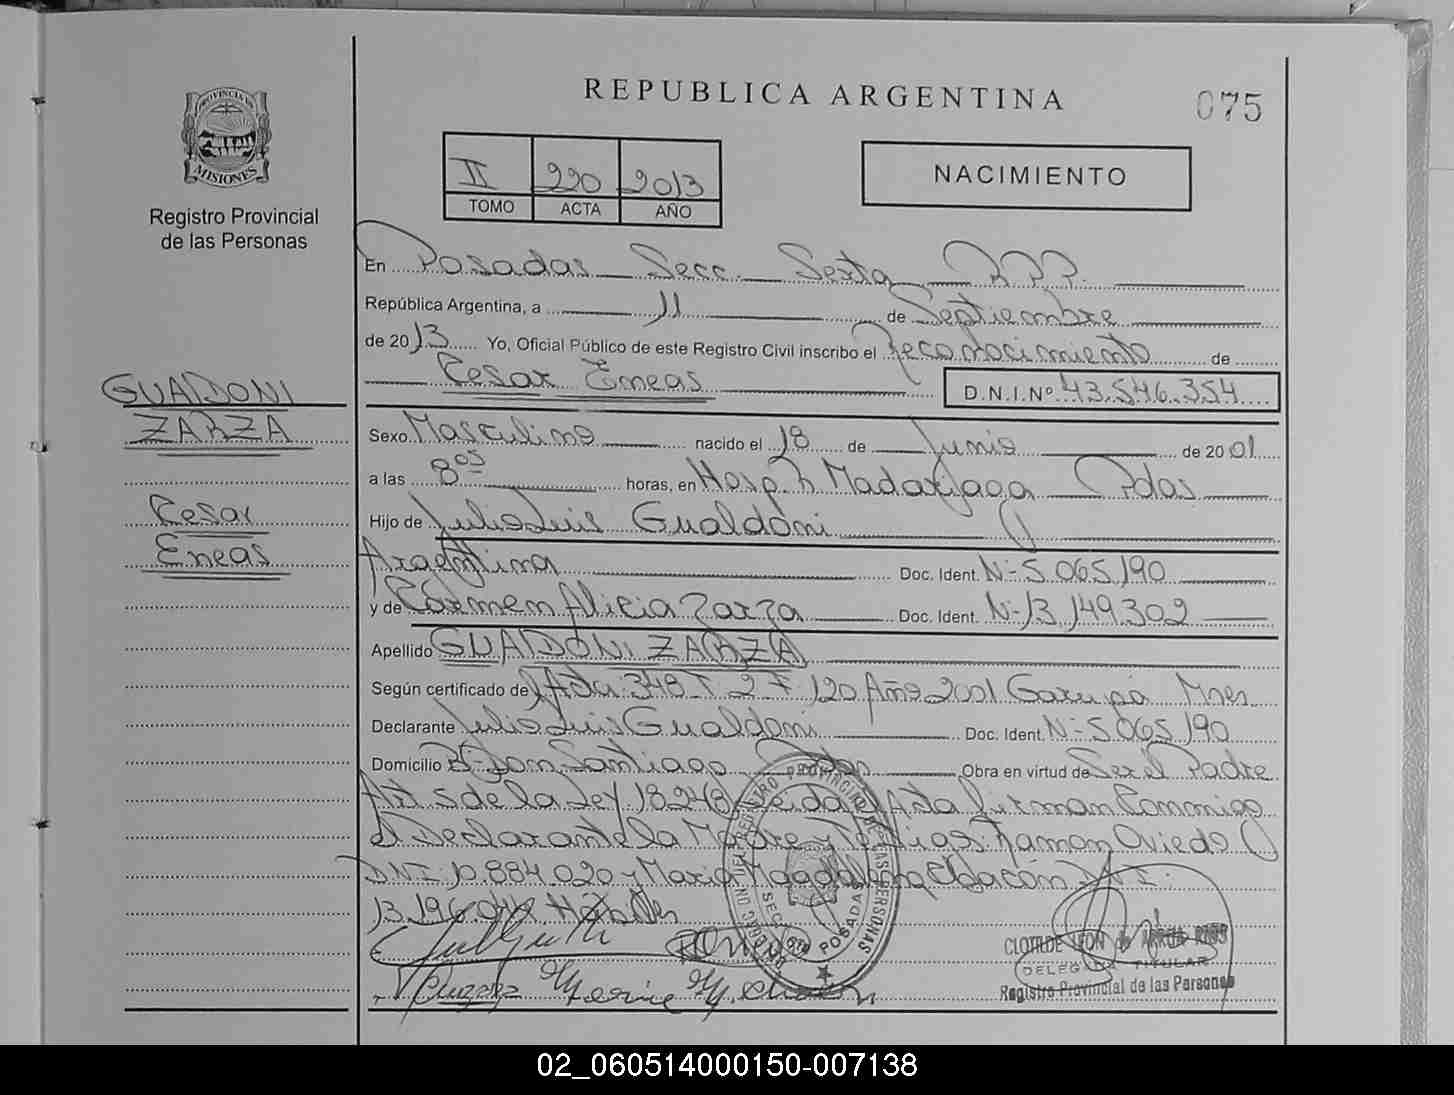 PROVINCIA DE
MISIONES
Registro Provincial
de las Personas
REPUBLICA ARGENTINA
075
II 220 2013
TOMO ACTA AÑO
NACIMIENTO
En Posadas Secc. Sexta R.P.P.
República Argentina, a 11 de Septiembre
de 2013 Yo, Oficial Público de este Registro Civil inscribo el Reconocimiento de
Cesar Eneas D.N.I.Nº 43.546.354
GUALDONI
ZARZA
Cesar
Eneas
Sexo Masculino nacido el 18 de Junio de 2001
a las 8:05 horas, en Hosp. R Madariaga Pdas
Hijo de Julio Luis Gualdoni
Argentina Doc. Ident. Nº 5.065.190
y de Carmen Alicia Zarza Doc. Ident. Nº 13.149.302
Apellido GUALDONI ZARZA
Según certificado de Acta 348 T 2 F 120 Año 2001 Garupá Mnes
Declarante Julio Luis Gualdoni Doc. Ident. Nº 5.065.190
Domicilio Bº Don Santiago Pdas Obra en virtud de Ser el Padre
Art 5 de la Ley 18248 Leída el Acta firman Conmigo
el Declarante la Madre y Testigos: Ramon Oviedo
DNI 10.884.020 y Maria Magdalena Chacón DNI
13.196.
REGISTRO PROVINCIAL DE LAS PERSONAS
POSADAS
CLOTILDE LEON de
DELEGADA TITULAR
Registro Provincial de las Personas
02_060514000150-007138